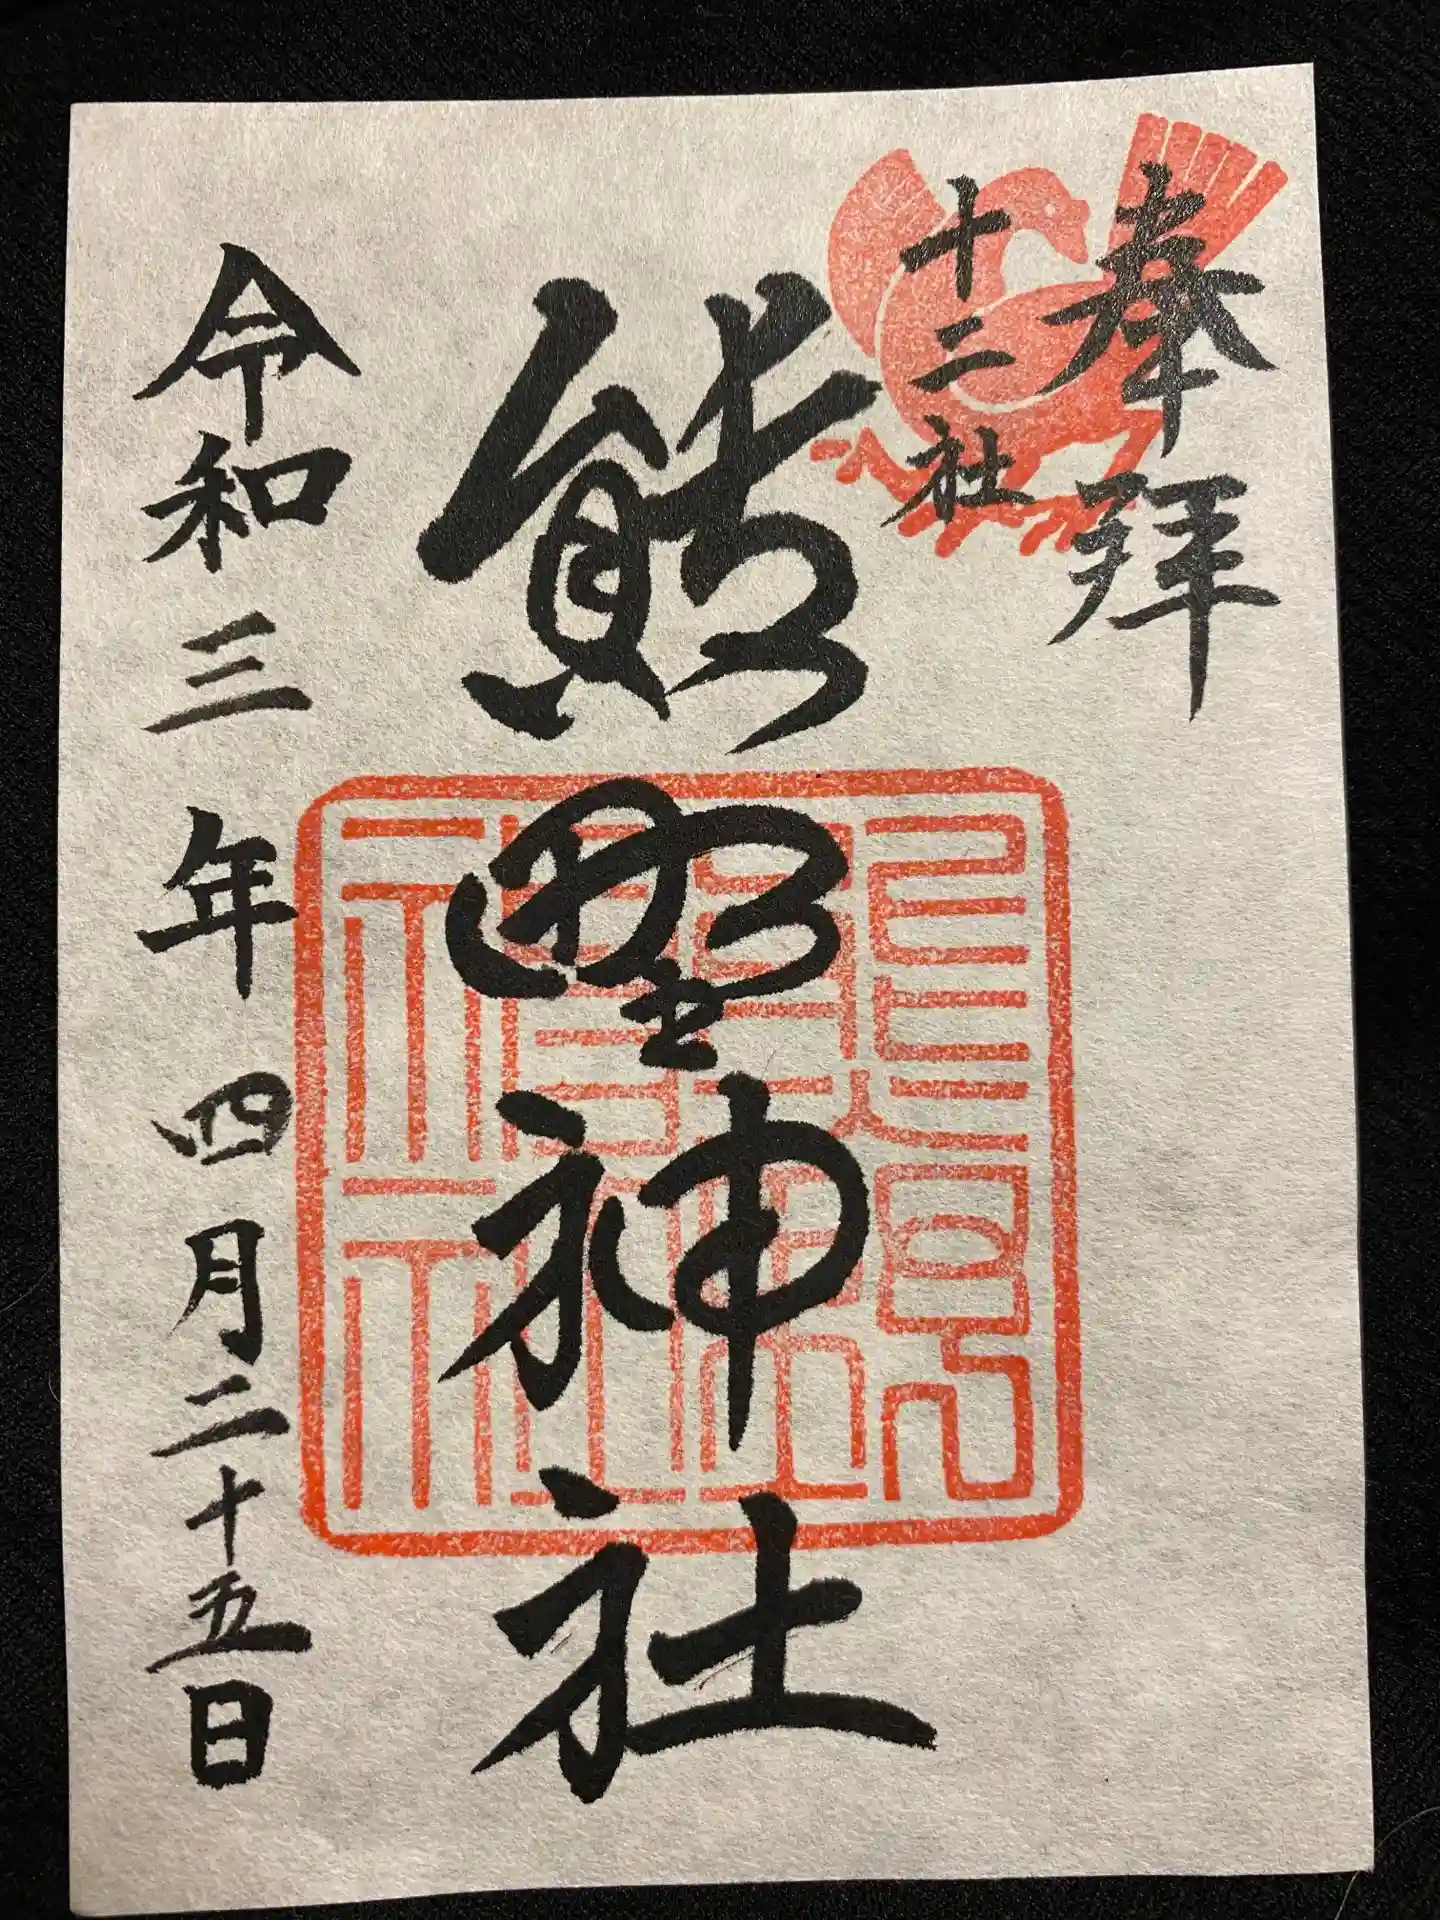 奉拝
十二社
熊野神社
令和三年四月二十五日